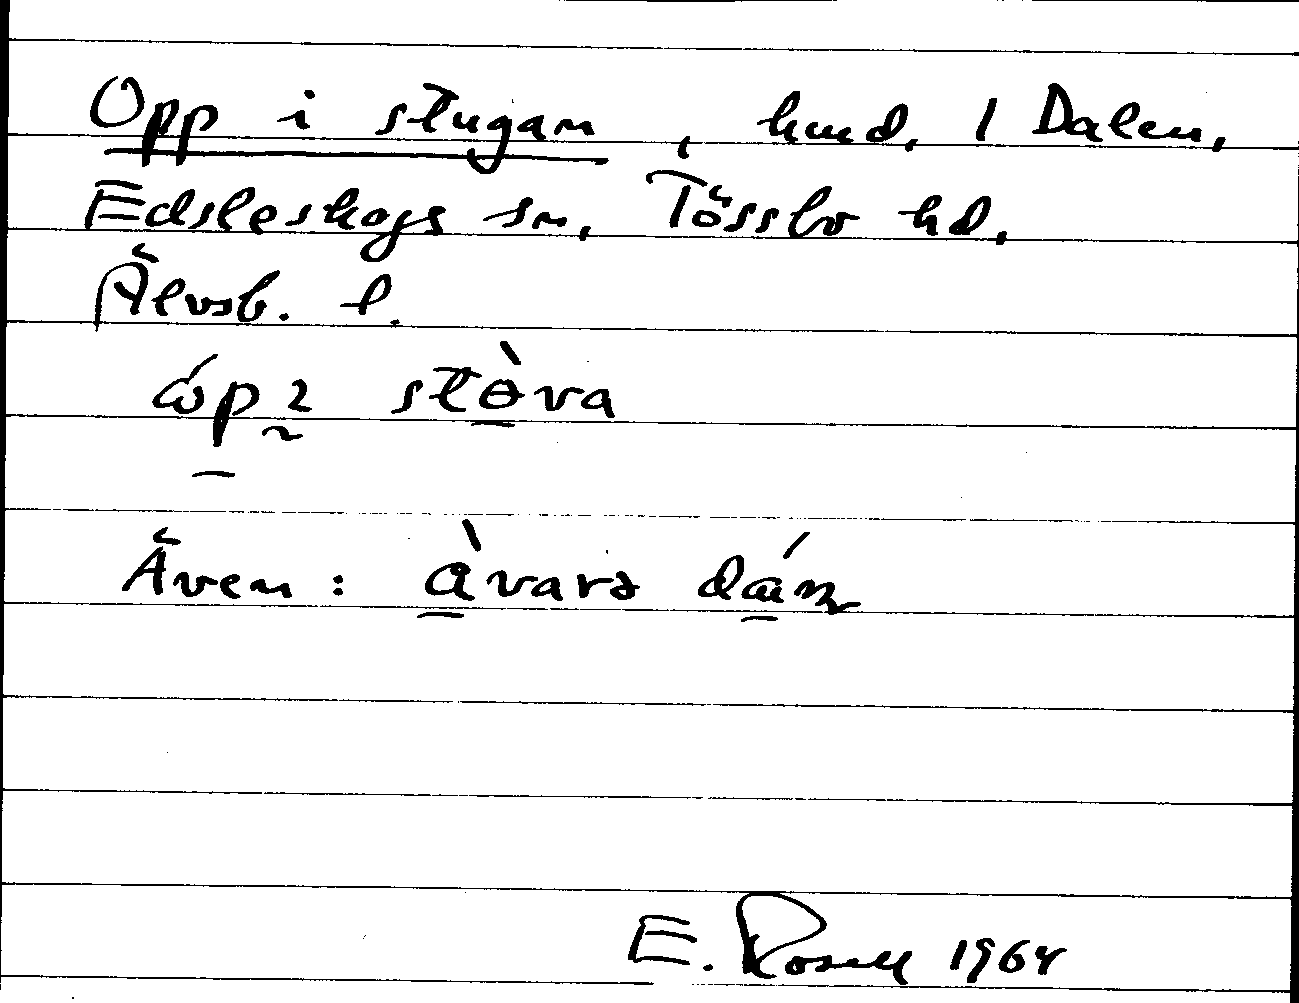 Opp i stugan, hmd, 1 Dalen,
Edsleskogs sn, Tössbo hd,
Älvsb. l.
stòva
Även: àvarə
E. Rosell 1964